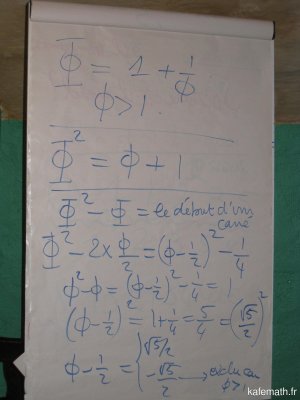 Φ = 1 + 1/Φ
Φ > 1
Φ² = Φ + 1
Φ² - Φ = le début d'un carré
Φ² - 2 × Φ/2 = (Φ - 1/2)² - 1/4
Φ² - Φ = (Φ - 1/2)² - 1/4 = 1
(Φ - 1/2)² = 1 + 1/4 = 5/4 = (√5/2)²
Φ - 1/2 = { √5/2
-√5/2 → exclu car Φ > 1
kafemath.fr